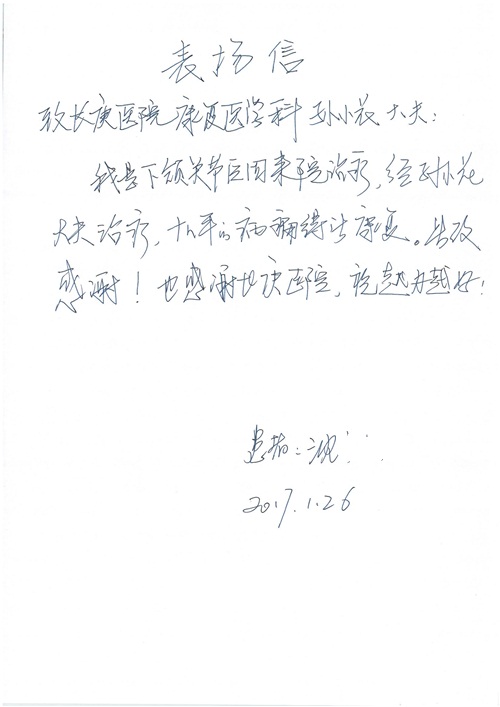 表扬信
致长庚医院康复医学科孙小花大夫：
我是下颌关节原因来院治疗，经孙小花
大夫治疗，十几年的病痛得以康复。
感谢！也感谢长庚医院，祝越办越好！
患者：沈
2017.1.26